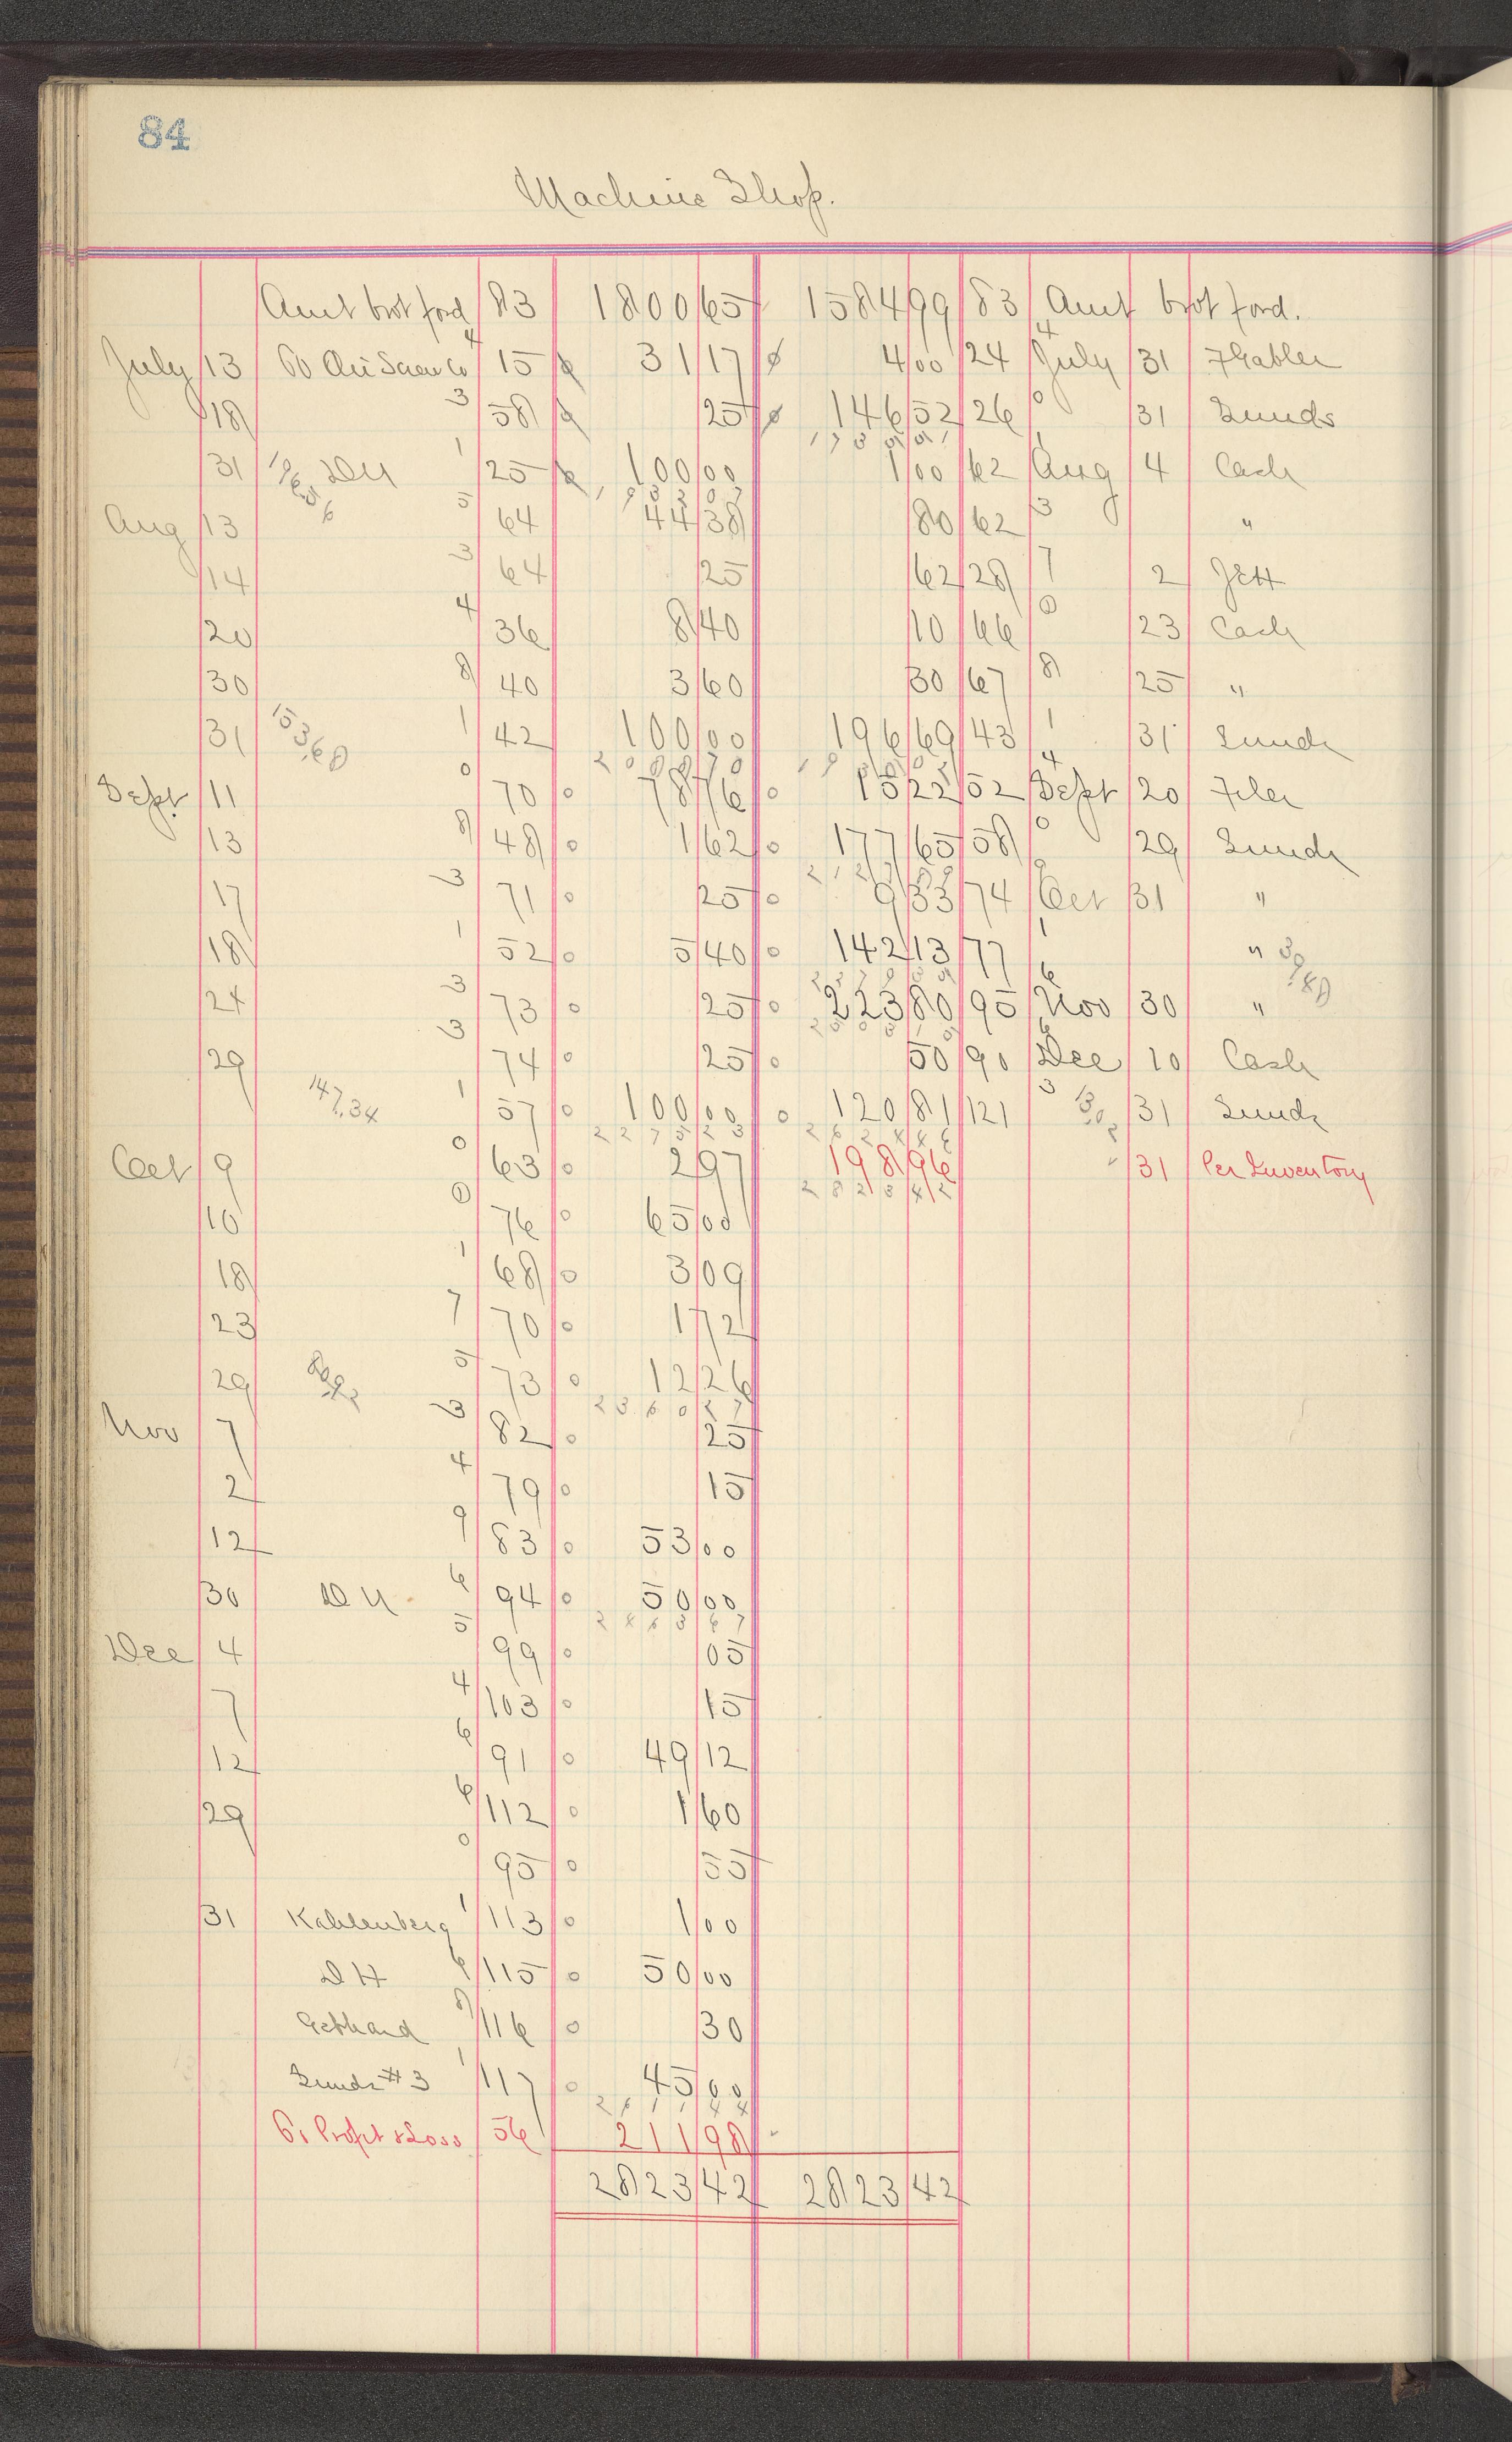 84
Machine Shop.
Amt brot ford 83 1800 65 1584 99 83 Amt brot ford.
July 13 15 31 17 4 00 24 July 31
18 3 58 25 146 52 26 31 Sunds
31 1 25 100 00 1 00 62 Aug 4 Cash
Aug 13 5 64 44 38 80 62 3 "
14 3 64 25 62 28 7 2
20 4 36 8 40 10 66 0 23 Cash
30 8 40 3 60 30 67 8 25 "
31 1 42 100 00 196 69 43 1 31 Sunds
Sept. 11 0 70 0 78 76 0 15 22 52 Sept 20 Filer
13 8 48 0 1 62 0 177 65 58 0 29 Sunds
17 3 71 0 25 0 9 33 74 Oct 31 "
18 1 52 0 5 40 0 142 13 77 1 "
24 3 73 0 25 0 223 80 95 Nov 30 "
29 3 74 0 25 0 50 90 Dec 10 Cash
147.34 1 57 0 100 00 0 120 81 121 3 31 Sunds
Oct 9 0 63 0 2 97 198 96 31 Per Inventory
10 0 76 0 65 00
18 1 68 0 3 09
23 7 70 0 1 72
29 5 73 0 12 26
Nov 7 3 82 0 25
2 4 79 0 15
12 9 83 0 53 00
30 6 94 0 50 00
Dec 4 5 99 0 05
7 4 103 0 15
12 6 91 0 49 12
29 6 112 0 1 60
0 95 0 55
31 Kahlenberg 1 113 0 1 00
D H 6 115 0 50 00
Gebhard 8 116 0 30
Sunds #3 1 117 0 45 00
Profit & Loss 56 211 98
2823 42 2823 42